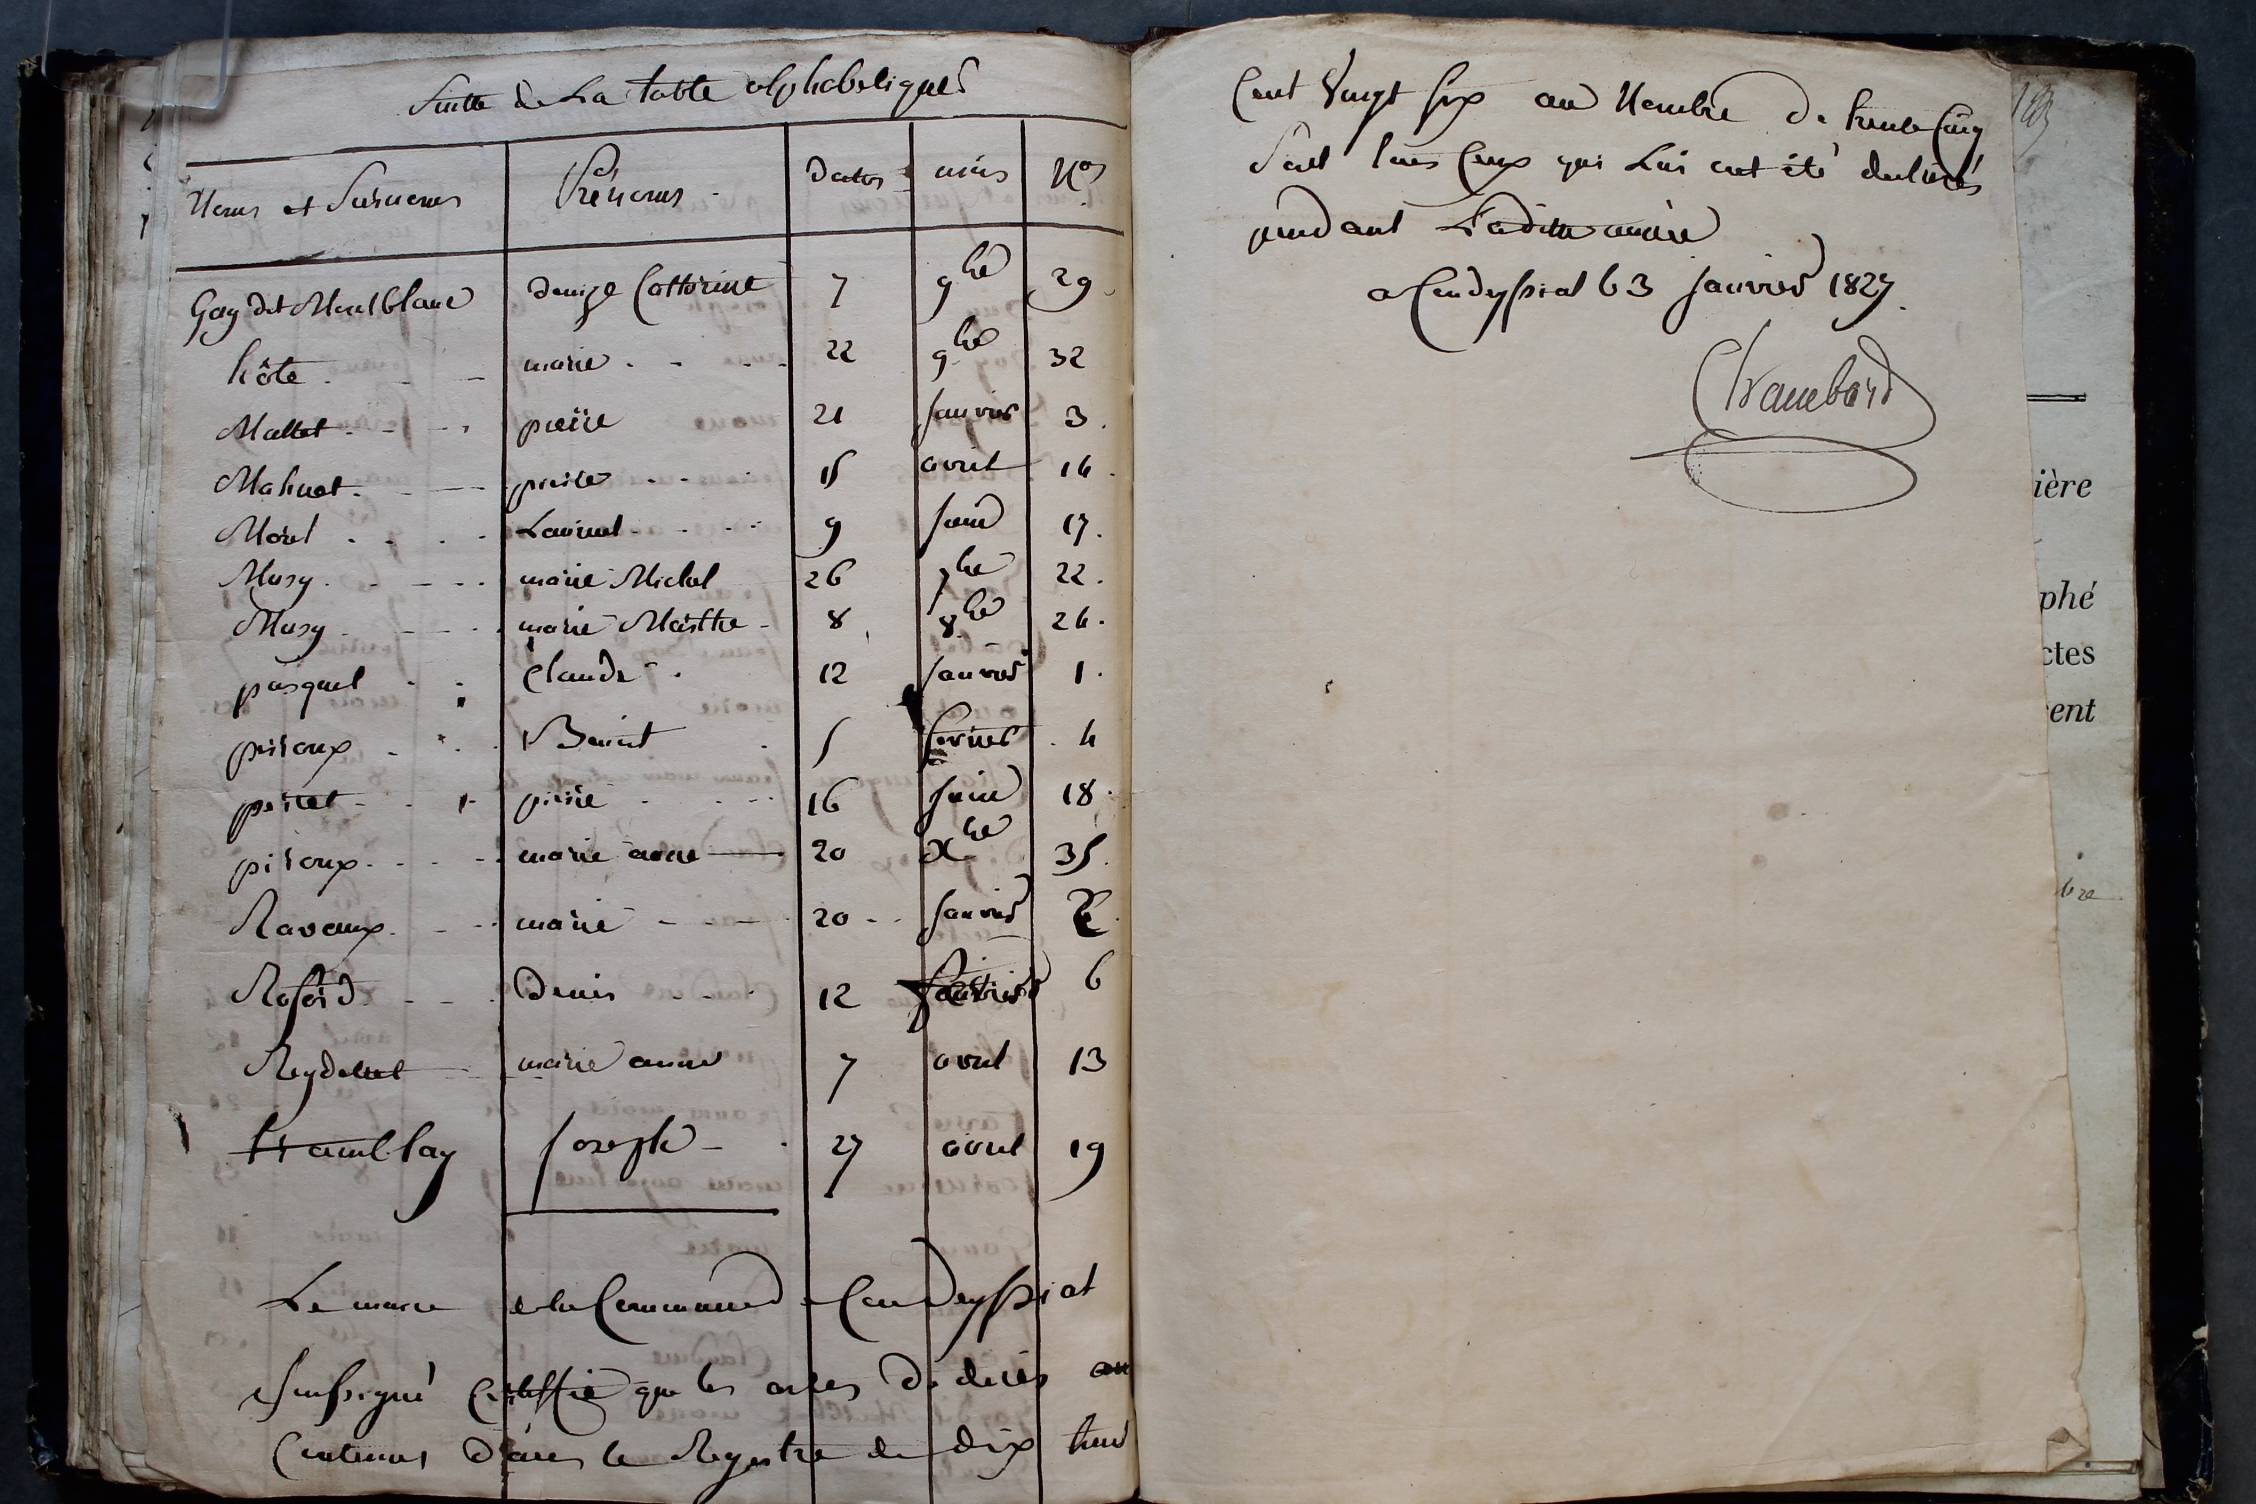 Suitte de La table alphabetique
Noms et Surnoms Prénoms Dates mois Nos
Gay dit Montblanc denize Catterine 7 9bre 29
hôte marie 22 9bre 32
Mallet pierre 21 janvier 3
Mahuet pierre 15 avril 14
Morel Laurent 9 juin 17
Musy marie Michel 26 7bre 22
Musy marie Marthe 8 8bre 24
pasquet Claude 12 janvier 1
piroux Benoit 5 fevrier 4
perret pierre 16 juin 18
piroux marie anne 20 Xbre 35
Raveaux marie 20 janvier 2
denis 12 6
Reydelet marie anne 7 avril 13
tramblay joseph 27 avril 19
Le maire de la Commune Condeyssiat
Soussigné Certiffie que les actes de décès
Contenus dans le Registre de dix huit
Cent vingt six au Nombre de trente cinq
Sont tous Ceux qui Lui ont été declarés
pendant Laditte année
a Condeyssiat le 3 janvier 1827.
Chambard
ière
phé
ctes
cent
bre